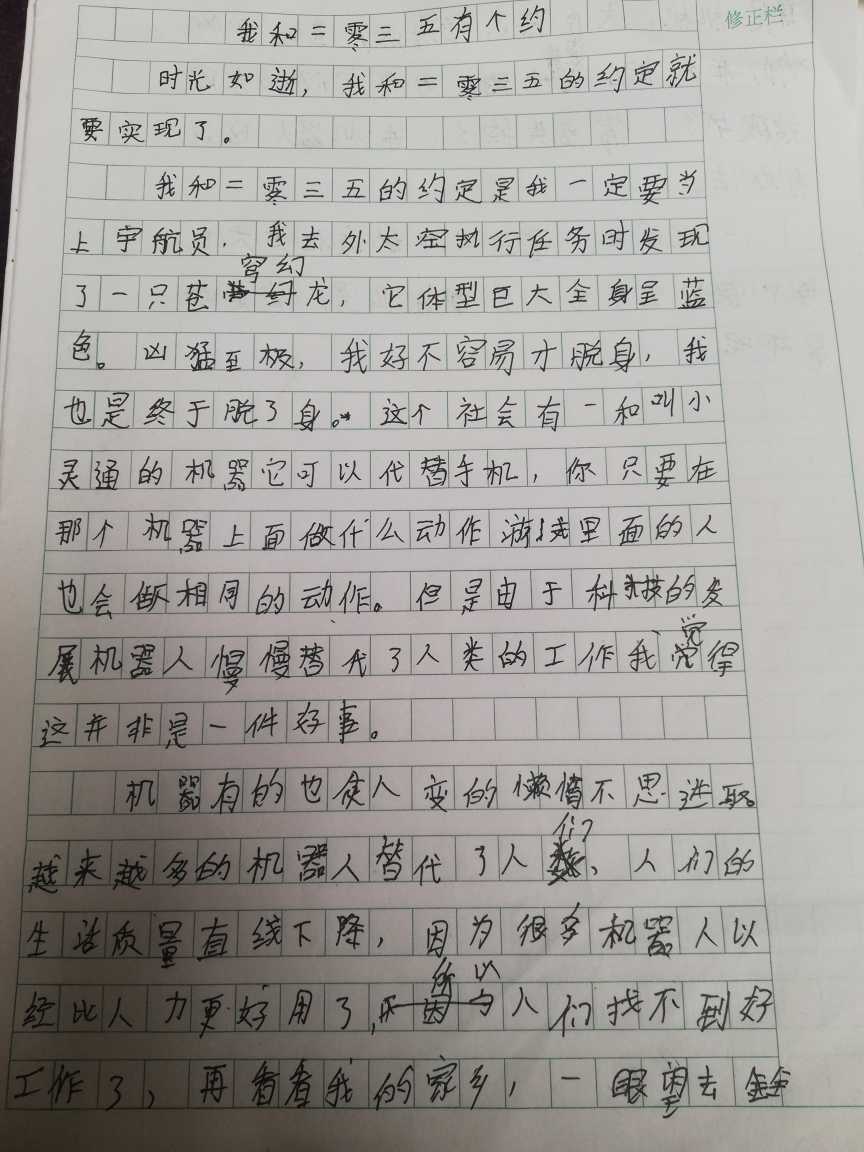 修正栏
我和二零三五有个约
时光如逝，我和二零三五的约定就
要实现了。
我和二零三五的约定是我一定要当
上宇航员．我去外太空执行任务时发现
穹幻
了一只苍龙，它体型巨大全身呈蓝
色。凶猛至极，我好不容易才脱身，我
也是终于脱了身。这个社会有一和叫小
灵通的机器它可以代替手机，你只要在
那个机器上面做什么动作游戏里面的人
也会做相同的动作。但是由于科技的发
觉
展机器人慢慢替代了人类的工作我觉得
这并非是一件好事。
机器有的也使人变的懒惰不思进取。
们
越来越多的机器人替代了人，人们的
生活质量直线下降，因为很多机器人以
所以
经比人力更好用了，因为人们找不到好
工作了，再看看我的家乡，一眼望去